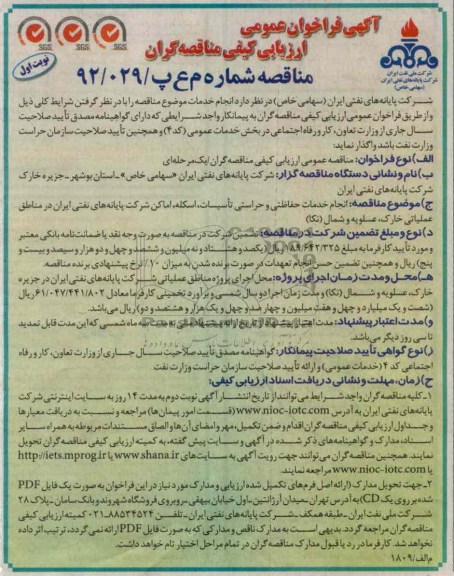 آگهی فراخوان عمومی
ارزیابی کیفی مناقصه گران
نوبت اول
مناقصه شماره م ع پ/۹۲/۰۲۹
شرکت ملی نفت ایران
شرکت پایانه‌های نفتی ایران
(سهامی خاص)
SGS SGS SGS
شرکت پایانه‌های نفتی ایران (سهامی خاص) در نظر دارد انجام خدمات موضوع مناقصه را با در نظر گرفتن شرایط کلی ذیل
و از طریق فراخوان عمومی ارزیابی کیفی مناقصه‌گران به پیمانکار واجد شرایطی که دارای گواهینامه مصدق تأیید صلاحیت
سال جاری از وزارت تعاون، کار و رفاه اجتماعی در بخش خدمات عمومی (کد۴) و همچنین تأیید صلاحیت سازمان حراست
وزارت نفت باشد واگذار نماید:
الف) نوع فراخوان: مناقصه عمومی ارزیابی کیفی مناقصه‌گران/یک مرحله‌ای
ب) نام و نشانی دستگاه مناقصه گزار: شرکت پایانه‌های نفتی ایران «سهامی خاص» ـ استان بوشهر ـ جزیره خارک
شرکت پایانه‌های نفتی ایران
ج) موضوع مناقصه: انجام خدمات حفاظتی و حراستی تأسیسات، اسکله، اماکن شرکت پایانه‌های نفتی ایران در مناطق
عملیاتی خارک، عسلویه و شمال (نکا)
د) نوع و مبلغ تضمین شرکت در مناقصه: تضمین شرکت در مناقصه به صورت وجه نقد یا ضمانت‌نامه بانکی معتبر
و مورد تأیید کارفرما به مبلغ ریال (یکصد و هشتاد و نه میلیون و ششصد و چهل و دو هزار و سیصد و بیست و
پنج) ریال و همچنین تضمین حسن انجام تعهدات در صورت برنده شدن به میزان ۱۰٪ نرخ پیشنهادی برنده مناقصه.
هـ) محل و مدت زمان اجرای پروژه: محل اجرای پروژه مناطق عملیاتی شرکت پایانه‌های نفتی ایران در جزیره
خارک، عسلویه و شمال (نکا) و مدت زمان اجرا دو سال شمسی و برآورد تخمینی کارفرما معادل ۶۱/۰۴۷/۴۴۱/۸۰۲ ریال
(شصت و یک میلیارد و چهل و هفت میلیون و چهارصد و چهل و یک هزار و هشتصد و دو) ریال می‌باشد.
و) مدت اعتبار پیشنهاد: مدت اعتبار پیشنهاد از تاریخ ارائه پیشنهاد ماه شمسی که این مدت قابل تمدید
تا سی روز دیگر می‌باشد.
ز) نوع گواهی تأیید صلاحیت پیمانکار: گواهینامه مصدق تأیید صلاحیت سال جاری از وزارت تعاون، کار و رفاه
اجتماعی کد ۴ (خدمات عمومی) و ارائه تأیید صلاحیت سازمان حراست وزارت نفت
ح) زمان، مهلت و نشانی دریافت اسناد ارزیابی کیفی:
۱ـ کلیه مناقصه گران واجد شرایط می توانند از تاریخ انتشار آگهی نوبت دوم به مدت ۱۴ روز به سایت اینترنتی شرکت
پایانه‌های نفتی ایران به آدرس www.nioc-iotc.com (قسمت امور پیمان‌ها) مراجعه و نسبت به دریافت معیارها
و جداول ارزیابی کیفی مناقصه گران اقدام و ضمن تکمیل، مهر و امضای آن‌ها و الصاق مستندات مربوطه به همراه سایر
اسناد، مدارک و گواهینامه‌های ذکر شده در آگهی و سایت پیش گفته، به کمیته ارزیابی کیفی مناقصه‌گران تحویل
نمایند. همچنین مناقصه گران می‌توانند جهت رویت آگهی به سایت‌های www.shana.ir یا http://iets.mprog.ir
یا www.nioc-iotc.com مراجعه نمایند.
۲ـ جهت تحویل مدارک (ارائه اصل فرم‌های تکمیل شده ارزیابی و مدارک مورد نیاز در این فراخوان به صورت یک فایل PDF
شده بر روی یک CD) به آدرس تهران ـ میدان آرژانتین ـ اول خیابان بیهقی ـ روبروی فروشگاه شهروند و بانک سامان ـ پلاک ۲۸
شرکت ملی نفت ایران ـ طبقه همکف ـ شرکت پایانه‌های نفتی ایران ـ تلفن ۸۸۵۳۴۵۲۴-۰۲۱ کمیته ارزیابی کیفی
مناقصه گران مراجعه گردد. بدیهی است به مدارک ناقص و مدارکی که به صورت فایل PDF ارائه نمی گردد، ترتیب اثر داده
نخواهد شد. کارفرما در رد یا قبول مدارک مناقصه گران در تمام مراحل اختیار تام خواهد داشت.
م الف/۱۸۰۹